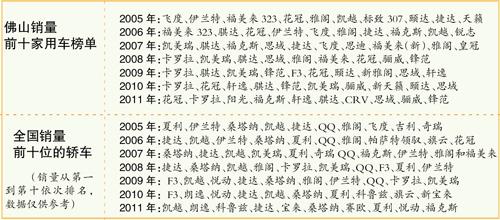 佛山销量
前十名家用车榜单
2005 年：飞度、伊兰特、福美来 323、花冠、雅阁、凯越、标致 307、颐达、捷达、天籁
2006 年：福美来 323、骐达、花冠、伊兰特、飞度、雅阁、捷达、福克斯、凯越、锐志
2007 年：凯美瑞、骐达、福克斯、思域、捷达、飞度、思迪、福美来（新）、雅阁、皇冠
2008 年：卡罗拉、凯美瑞、骐达、思域、雅阁、福美来、花冠、骊威、锋范
2009 年：卡罗拉、骐达、凯美瑞、锋范、F3、花冠、颐达、新雅阁、思域、轩逸
2010 年：卡罗拉、花冠、轩逸、骐达、锋范、凯美瑞、骊威、新天籁、颐达、思域
2011 年：花冠、卡罗拉、阳光、福克斯、轩逸、骐达、CRV、思域、骊威、锋范
全国销量
前十位的轿车
（销量从第一
到第十依次排名，
数据仅供参考）
2005 年：夏利、伊兰特、桑塔纳、凯越、捷达、QQ、雅阁、飞度、吉利、奇瑞
2006 年：捷达、凯越、伊兰特、桑塔纳、夏利、QQ、雅阁、帕萨特领驭、旗云、花冠
2007 年：桑塔纳、捷达、凯越、凯美瑞、夏利、奇瑞 QQ、福克斯、伊兰特、雅阁和福美来
2008 年：捷达、桑塔纳、凯越、雅阁、卡罗拉、凯美瑞、QQ、F3、夏利、伊兰特
2009 年：F3、凯越、悦动、捷达、桑塔纳、雅阁、伊兰特、QQ、卡罗拉、凯美瑞
2010 年：F3、朗逸、悦动、捷达、凯越、桑塔纳、夏利、科鲁兹、旗云、新宝来
2011 年：凯越、朗逸、科鲁兹、捷达、宝来、桑塔纳、赛欧、夏利、悦动、福克斯